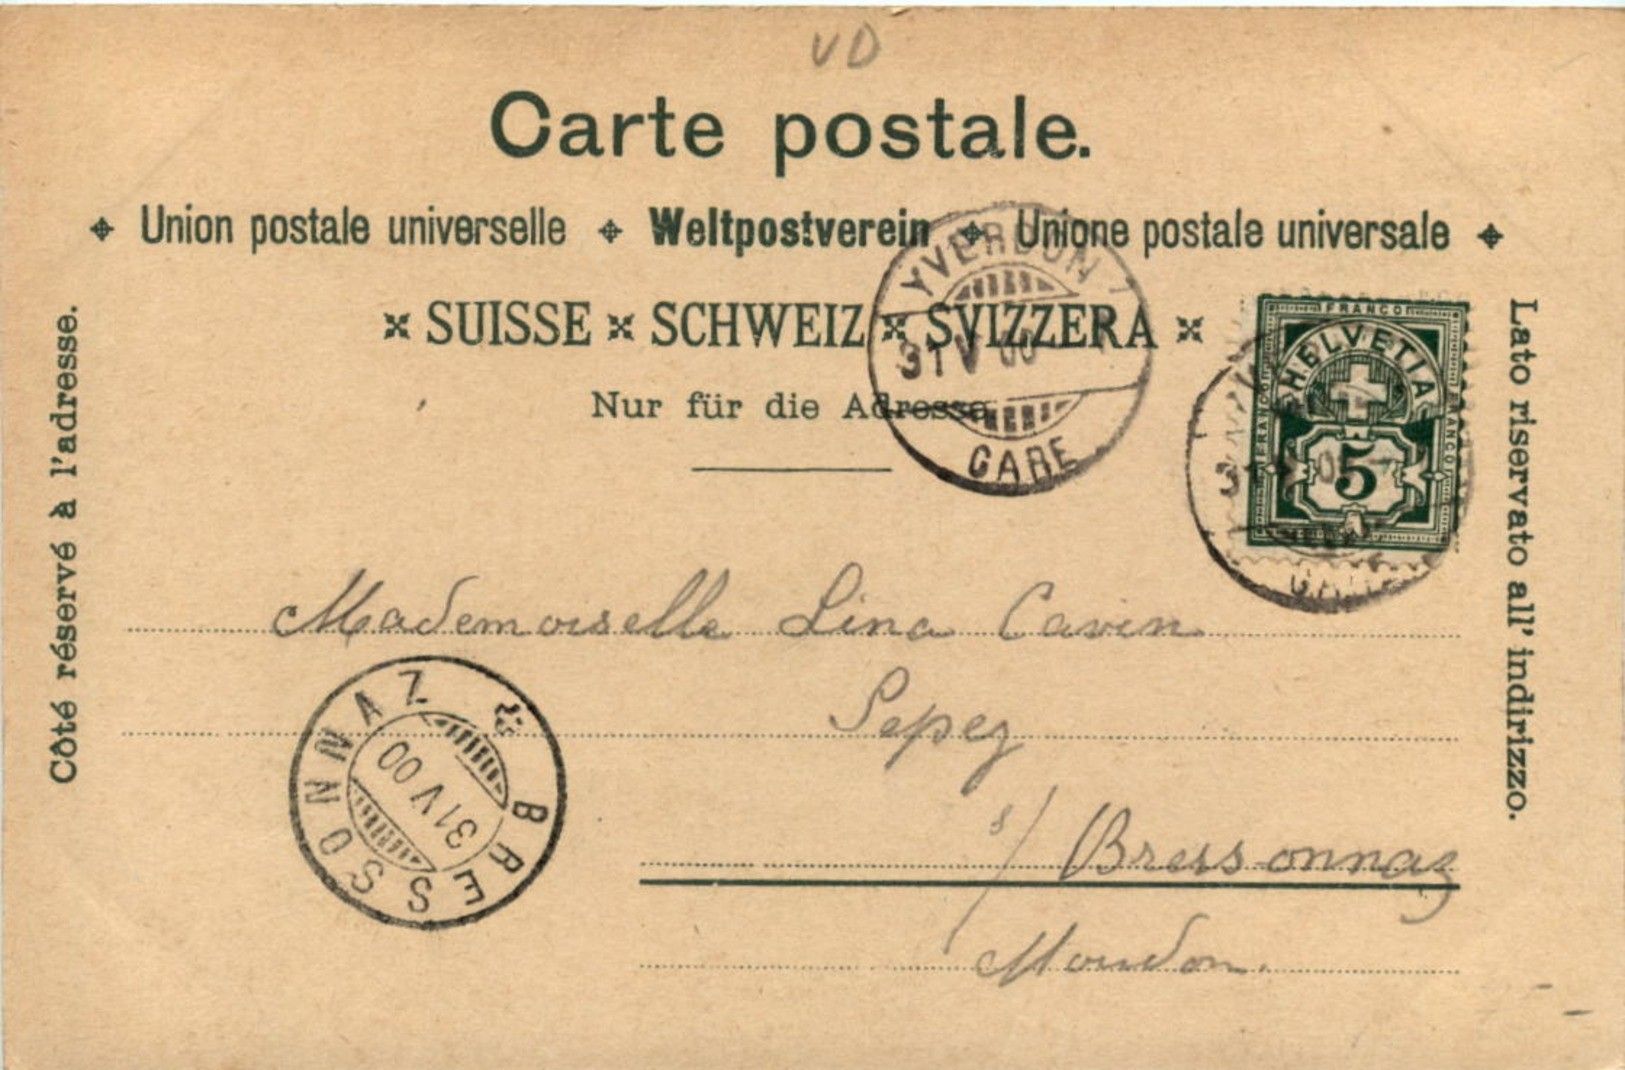 VD
Carte postale.
Union postale universelle Weltpostverein Unione postale universale
SUISSE SCHWEIZ SVIZZERA
Nur für die Adresse
Côté réservé à l'adresse.
Lato riservato all' indirizzo.
YVERDON
31 V 00
GARE
FRANCO
HELVETIA
FRANCO
FRANCO
5
31
GARE
Mademoiselle Lina Cavin
Sepey
s/ Bressonnaz
Moudon.
BRESSONNAZ
31 V 00